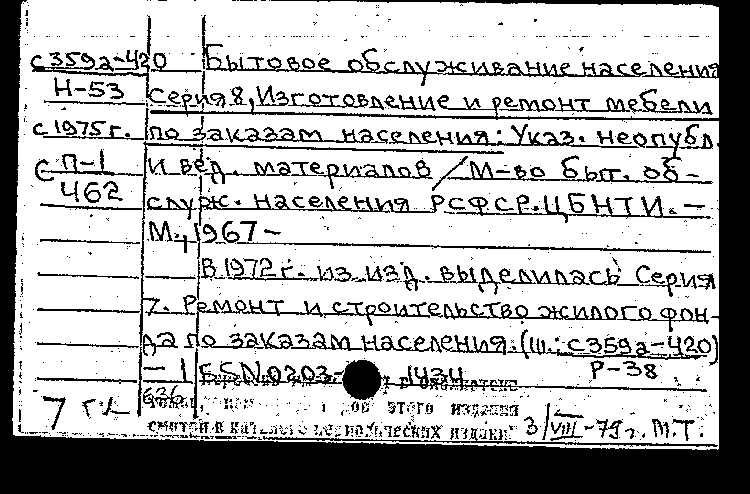 с359а-420 Бытовое обслуживание населения
Н-53 Серия 8, Изготовление и ремонт мебели
с 1975г. по заказам населения: Указ. неопубл.
С П-1 и вед. материалов / М-во быт. об-
462 служ. населения РСФСР. ЦБНТИ. –
М., 1967 –
В 1972 г. из изд. выделилась Серия
7. Ремонт и строительство жилого фон-
да по заказам населения. (ш.: с359а-420)
– 1 ISSN 0203- 1434 Р-38
636
этого издания
смотри в каталоге периодических изданий 3/VIII-79г. М.Т.